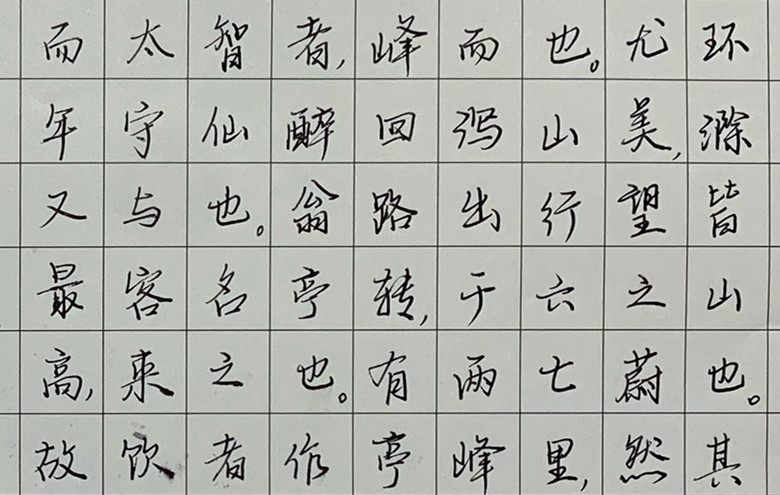 环滁皆山也。其
尤美,望之蔚然
也。山行六七里,
而泻出于两峰
峰回路转,有亭
者,醉翁亭也。作
智仙也。名之者
太守与客来饮
而年又最高,故